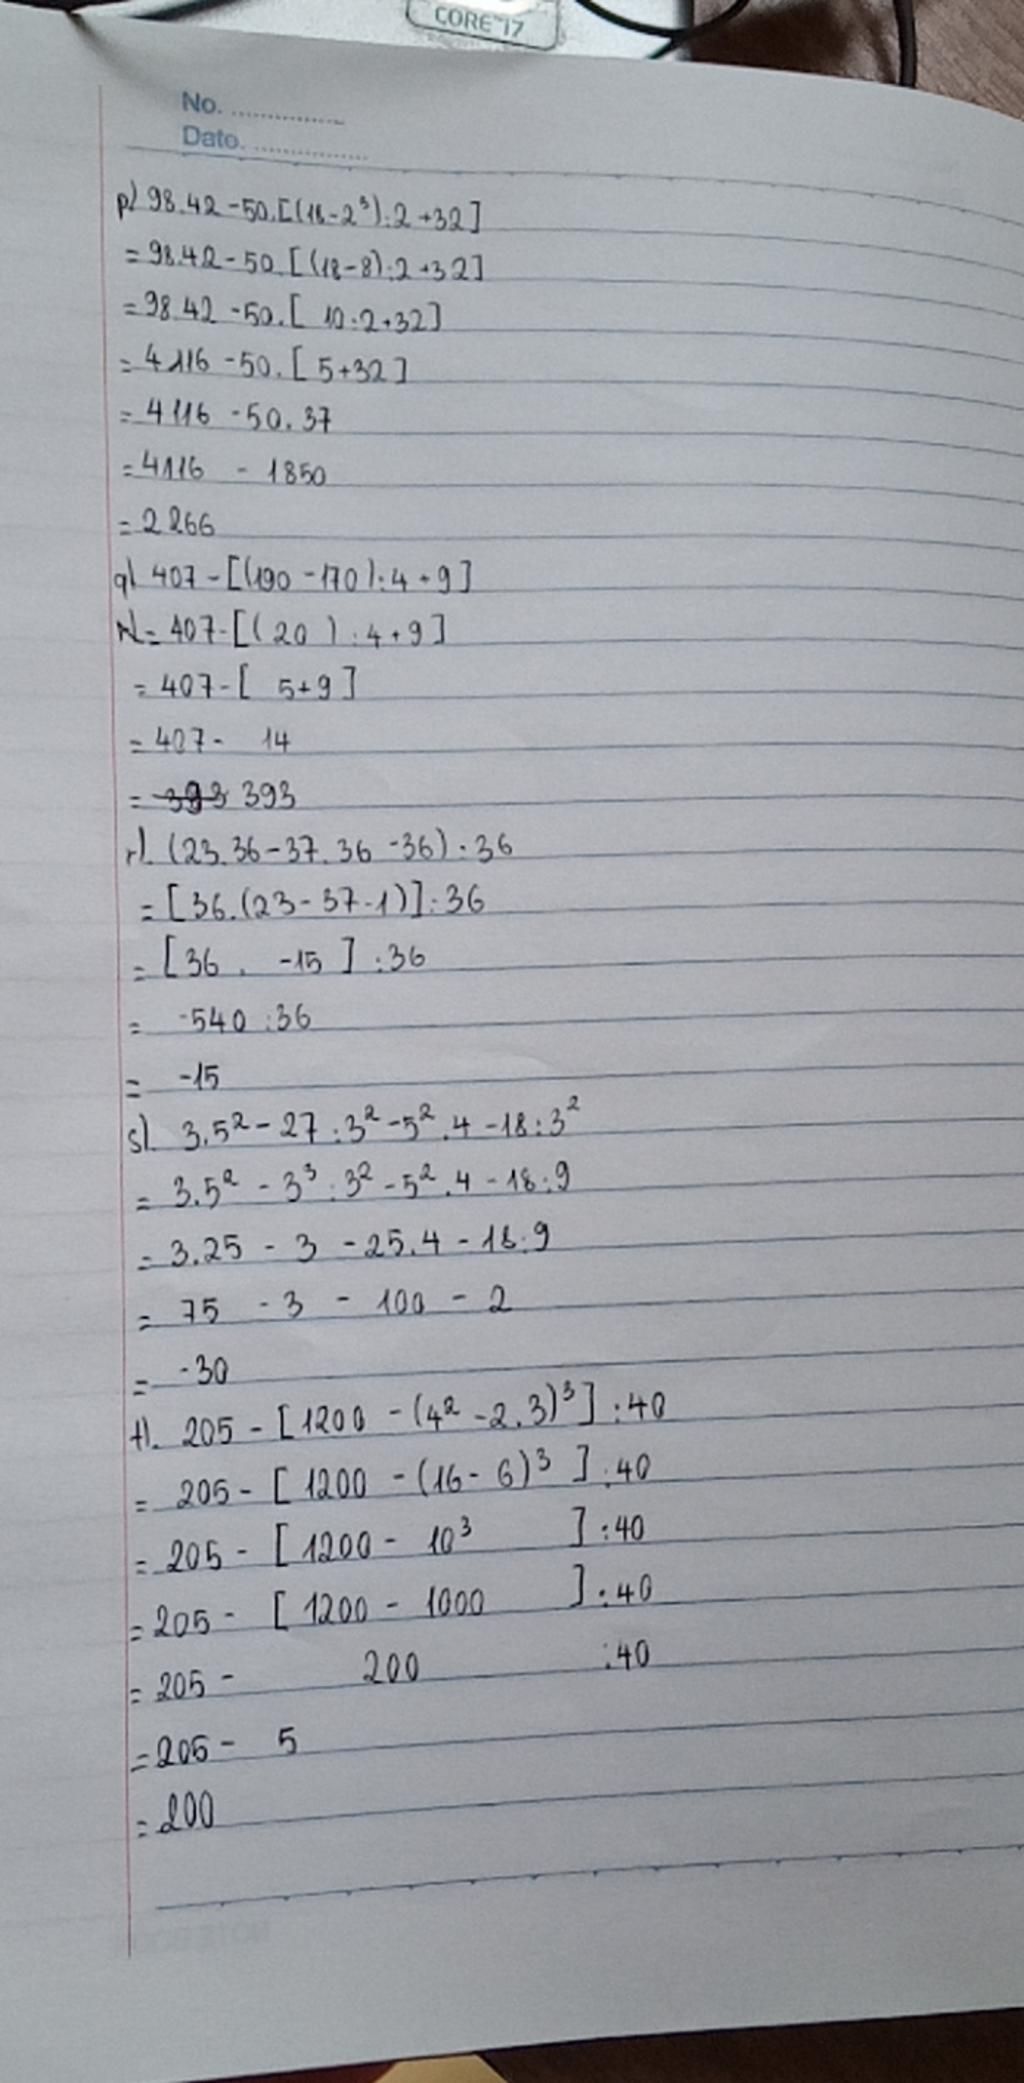 CORE i7
No.
Date.
p) 98.42 - 50.[(18-2³):2+32]
= 98.42 - 50.[(18-8):2+32]
= 98.42 - 50.[ 10:2+32]
= 4116 - 50.[ 5+32]
= 4116 - 50.37
= 4116 - 1850
= 2266
q) 407 - [(190 - 170):4+9]
= 407 - [( 20 ):4+9]
= 407 - [ 5+9]
= 407 - 14
= 393 393
r). (23.36 - 37.36 - 36):36
= [36.(23 - 37 - 1)]:36
= [36 . -15 ] :36
= -540 :36
= -15
s). 3.5² - 27:3² - 5².4 - 18:3²
= 3.5² - 3³:3² - 5².4 - 18:9
= 3.25 - 3 - 25.4 - 18:9
= 75 - 3 - 100 - 2
= -30
t). 205 - [1200 - (4² - 2.3)³] :40
= 205 - [1200 - (16 - 6)³ ] :40
= 205 - [1200 - 10³ ] :40
= 205 - [1200 - 1000 ] :40
= 205 - 200 :40
= 205 - 5
= 200